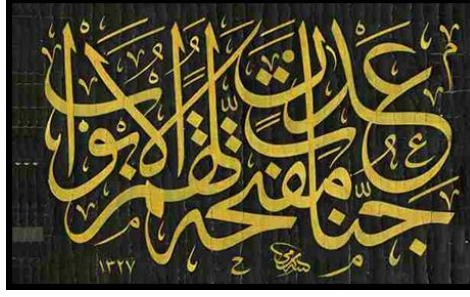 جَنَّاتِ عَدْنٍ مُفَتَّحَةً لَهُمُ الْأَبْوَابُ
١٣٢٧